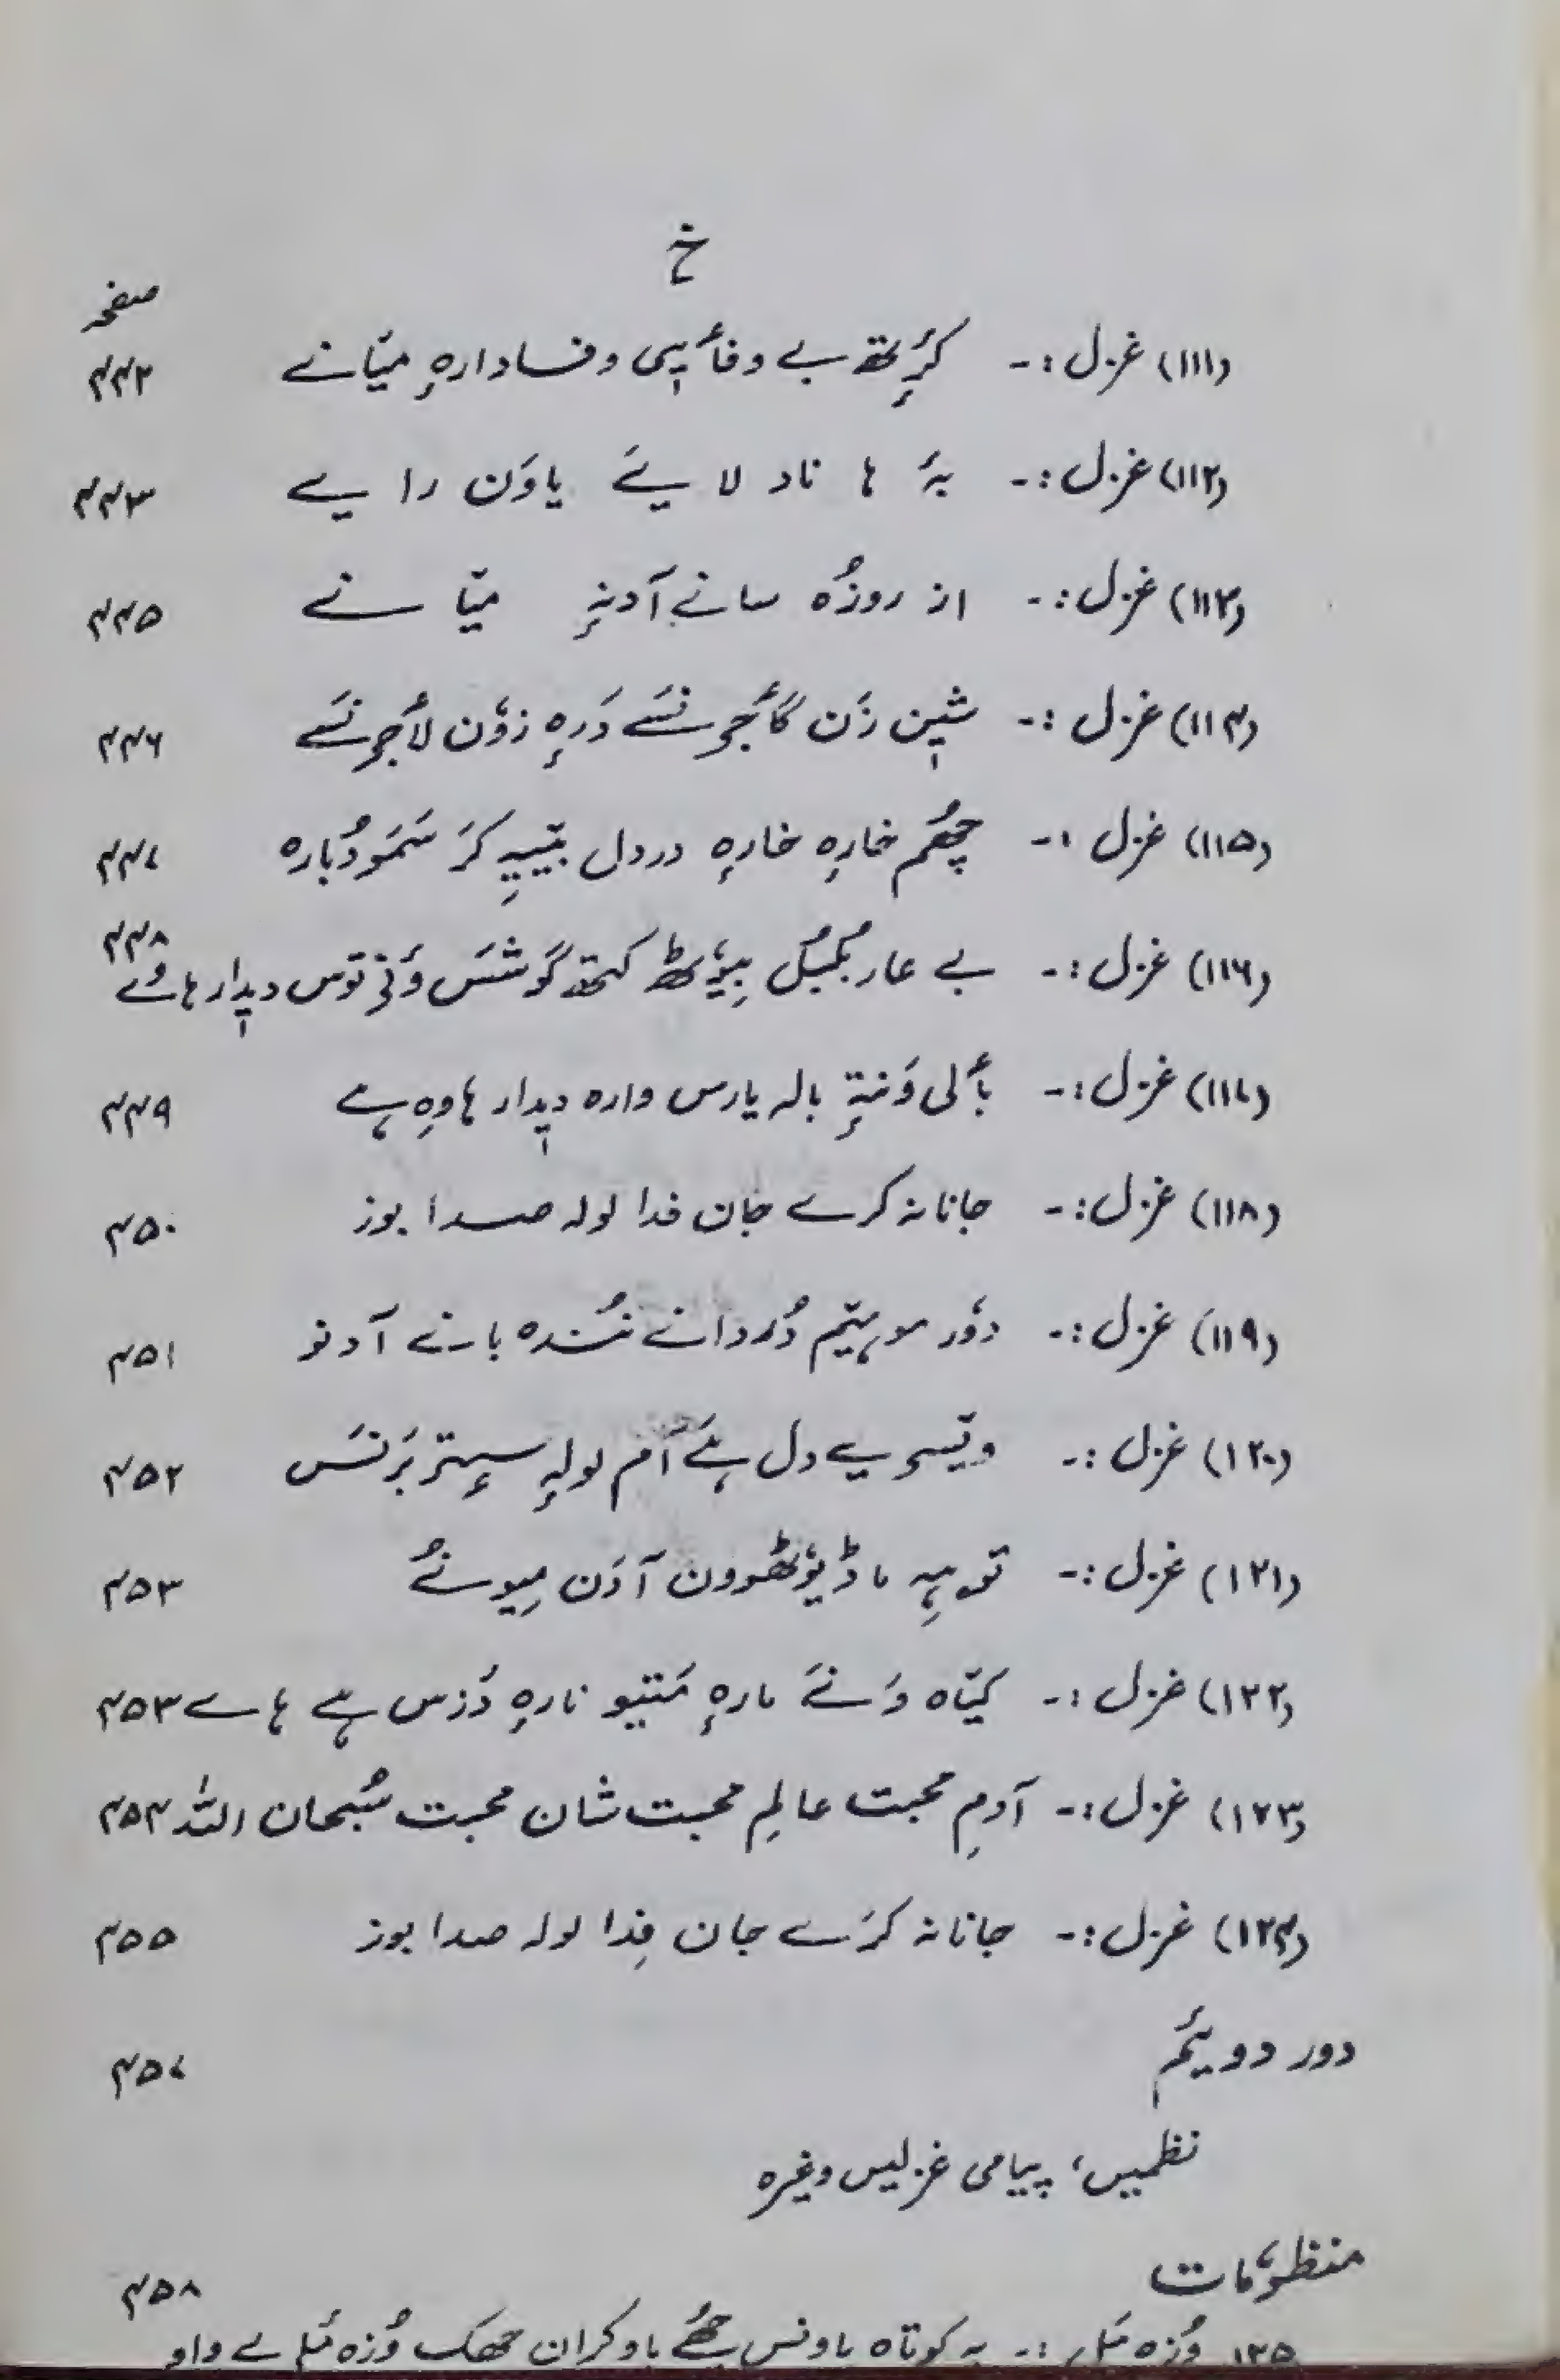 خ
صفحہ
(۱۱۱) غزل :- کرِٔتھ بے وفأیی وفادارہِ میّانے ۴۴۲
(۱۱۲) غزل :- بۂ ہا ناد لایےَ یاوَن رایے ۴۴۳
(۱۱۳) غزل :- از روزُہ سانے آدنہِ میّانے ۴۴۵
(۱۱۴) غزل :- شیٖن زَن گأجونسَے دَرہِ زوٗن لأجونسَے ۴۴۶
(۱۱۵) غزل :- چھُم خارہِ خارہِ دردل بیّیہِ کَر سَمَو دُبارہ ۴۴۷
(۱۱۶) غزل :- بے عار بُمبُل بیوٗٹھ کتھ گوشسَ وَنۍ توس دیٖدار ہاوُے ۴۴۸
(۱۱۷) غزل :- بألی وَنتہِ بالہ یارس وارہ دیٖدار ہاوِہ ہے ۴۴۹
(۱۱۸) غزل :- جانانہ کرے جان فدا لولہ صدا بوز ۴۵۰
(۱۱۹) غزل :- دوٗر موہیّم دُردانے نُندہ بانے آدنو ۴۵۱
(۱۲۰) غزل :- ویّسۍ یے دل ہےَ أم لولہِ سیٖتۍ بَرنسَ ۴۵۲
(۱۲۱) غزل :- توہیہِ ما ڈیوٗٹھوون آدَن میونُے ۴۵۳
(۱۲۲) غزل :- کیّاہ وَنےَ مارہِ مَتیو نارہِ دَزس ہے ہاے ۴۵۳
(۱۲۳) غزل :- آدمِ محبت عالمِ محبت شان محبت سُبحان اللہ ۴۵۴
(۱۲۴) غزل :- جانانہ کرَے جان فِدا لولہ صدا بوز ۴۵۵
دور دویٔم ۴۵۷
نظمیں، پیامی غزلیں وغیرہ
منظوٗمات ۴۵۸
۱۲۵ وُزہ مَل :- یہ کوتاہ باونس چھُے باو کران چھکھ وُزہ مَلے واو